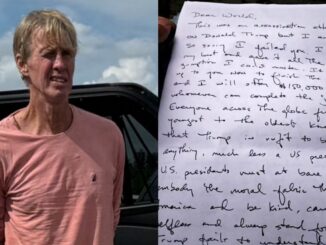 Dear World,
This was an assassination at
on Donald Trump but I a
so sorry I failed you I
my best and gave it all the
gumption I could muster. I
up to you now to finish the
and I will offer $150,000
whomever can complete the
Everyone across the globe f
youngest to the oldest know
that Trump is unfit to be
anything, much less a US pres
U.S. presidents must at bare
embody the moral fabric th
america and be kind, car
selfless and always stand for
Trump fails to understand